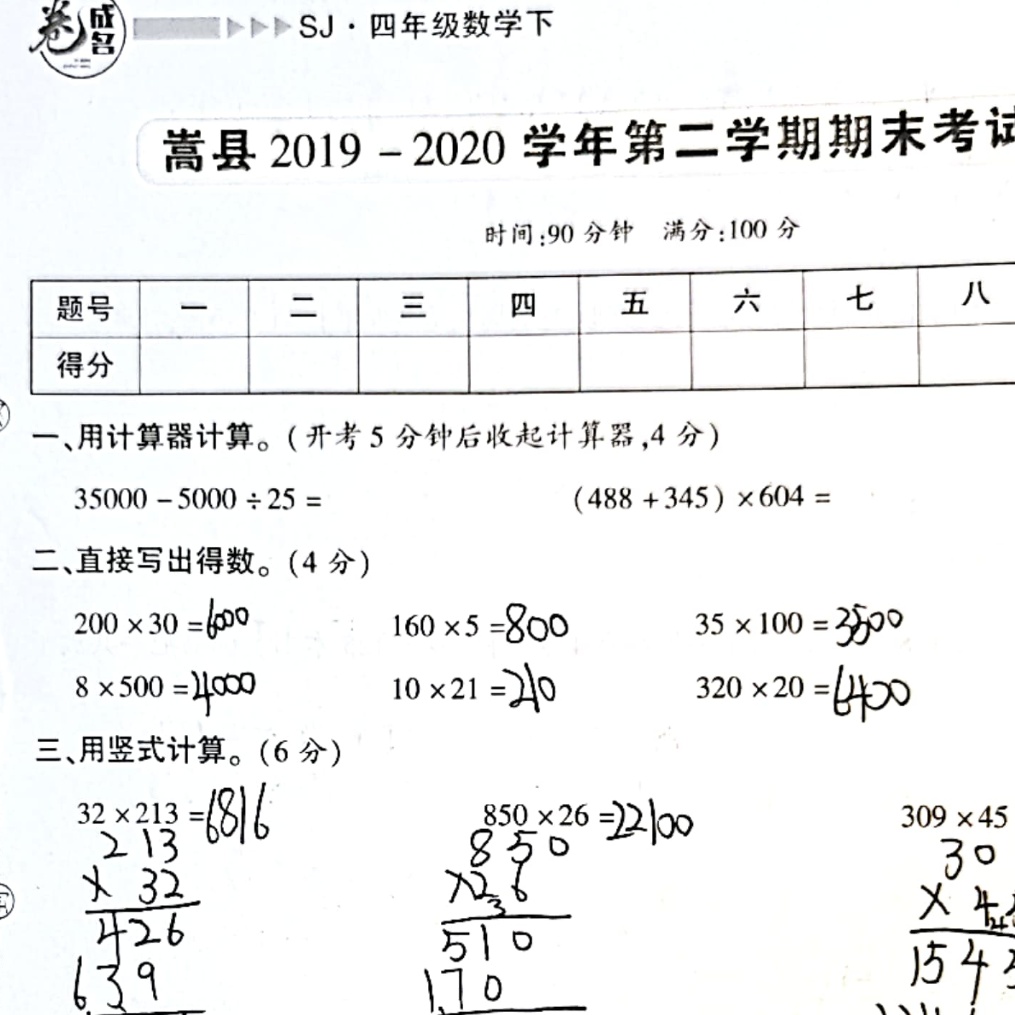 卷成名
SJ·四年级数学下
嵩县2019-2020学年第二学期期末考试
时间:90分钟 满分:100分
题号 一 二 三 四 五 六 七 八
得分
一、用计算器计算。(开考5分钟后收起计算器,4分)
35000-5000÷25= (488+345)×604=
二、直接写出得数。(4分)
200×30=6000 160×5=800 35×100=3500
8×500=4000 10×21=210 320×20=6400
三、用竖式计算。(6分)
32×213=6816 850×26=22100 309×45
213 850 30
×32 ×26 ×4
426 510 1545
639 170